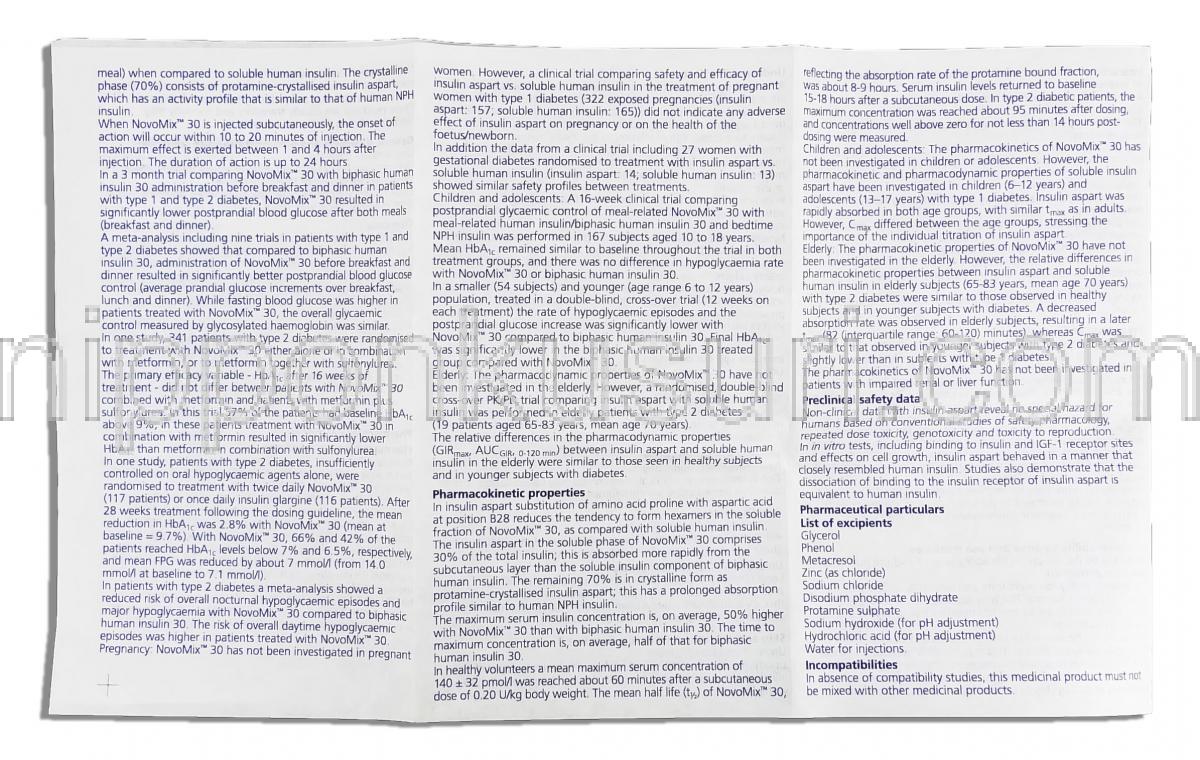 meal) when compared to soluble human insulin. The crystalline
phase (70%) consists of protamine-crystallised insulin aspart,
which has an activity profile that is similar to that of human NPH
insulin.
When NovoMix™ 30 is injected subcutaneously, the onset of
action will occur within 10 to 20 minutes of injection. The
maximum effect is exerted between 1 and 4 hours after
injection. The duration of action is up to 24 hours
In a 3 month trial comparing NovoMix™ 30 with biphasic human
insulin 30 administration before breakfast and dinner in patients
with type 1 and type 2 diabetes, NovoMix™ 30 resulted in
significantly lower postprandial blood glucose after both meals
(breakfast and dinner).
A meta-analysis including nine trials in patients with type 1 and
type 2 diabetes showed that compared to biphasic human
insulin 30, administration of NovoMix™ 30 before breakfast and
dinner resulted in significantly better postprandial blood glucose
control (average prandial glucose increments over breakfast,
lunch and dinner). While fasting blood glucose was higher in
patients treated with NovoMix™ 30, the overall glycemic
control measured by glycosylated haemoglobin was similar.
In one study, 341 patients with type 2 diabetes were randomised
to treatment with NovoMix™ 30 either alone or in combination
with metformin, or to metformin together with sulfonylurea.
The primary efficacy variable - HbA1c after 16 weeks of
treatment - did not differ between patients with NovoMix™ 30
combined with metformin and patients with metformin plus
sulfonylurea. In this trial 57% of the patients had baseline HbA1c
above 9%; in these patients treatment with NovoMix™ 30 in
combination with metformin resulted in significantly lower
HbA1c than metformin in combination with sulfonylurea.
In one study, patients with type 2 diabetes, insufficiently
controlled on oral hypoglycaemic agents alone, were
randomised to treatment with twice daily NovoMix™ 30
(117 patients) or once daily insulin glargine (116 patients). After
28 weeks treatment following the dosing guideline, the mean
reduction in HbA1c was 2.8% with NovoMix™ 30 (mean at
baseline = 9.7%). With NovoMix™ 30, 66% and 42% of the
patients reached HbA1c levels below 7% and 6.5%, respectively,
and mean FPG was reduced by about 7 mmol/l (from 14.0
mmol/l at baseline to 7.1 mmol/l).
In patients with type 2 diabetes a meta-analysis showed a
reduced risk of overall nocturnal hypoglycaemic episodes and
major hypoglycaemia with NovoMix™ 30 compared to biphasic
human insulin 30. The risk of overall daytime hypoglycaemic
episodes was higher in patients treated with NovoMix™ 30.
Pregnancy: NovoMix™ 30 has not been investigated in pregnant
women. However, a clinical trial comparing safety and efficacy of
insulin aspart vs. soluble human insulin in the treatment of pregnant
women with type 1 diabetes (322 exposed pregnancies (insulin
aspart: 157; soluble human insulin: 165)) did not indicate any adverse
effect of insulin aspart on pregnancy or on the health of the
foetus/newborn.
In addition the data from a clinical trial including 27 women with
gestational diabetes randomised to treatment with insulin aspart vs.
soluble human insulin (insulin aspart: 14; soluble human insulin: 13)
showed similar safety profiles between treatments.
Children and adolescents: A 16-week clinical trial comparing
postprandial glycaemic control of meal-related NovoMix™ 30 with
meal-related human insulin/biphasic human insulin 30 and bedtime
NPH insulin was performed in 167 subjects aged 10 to 18 years.
Mean HbA1c remained similar to baseline throughout the trial in both
treatment groups, and there was no difference in hypoglycaemia rate
with NovoMix™ 30 or biphasic human insulin 30.
In a smaller (54 subjects) and younger (age range 6 to 12 years)
population, treated in a double-blind, cross-over trial (12 weeks on
each treatment) the rate of hypoglycaemic episodes and the
postprandial glucose increase was significantly lower with
NovoMix™ 30 compared to biphasic human insulin 30. Final HbA1c
was significantly lower in the biphasic human insulin 30 treated
group compared with NovoMix™ 30.
Elderly: The pharmacodynamic properties of NovoMix™ 30 have not
been investigated in the elderly. However, a randomised, double-blind
cross-over PK/PD trial comparing insulin aspart with soluble human
insulin was performed in elderly patients with type 2 diabetes
(19 patients aged 65-83 years, mean age 70 years).
The relative differences in the pharmacodynamic properties
(GIRmax, AUCGIR, 0-120 min) between insulin aspart and soluble human
insulin in the elderly were similar to those seen in healthy subjects
and in younger subjects with diabetes.
Pharmacokinetic properties
In insulin aspart substitution of amino acid proline with aspartic acid
at position B28 reduces the tendency to form hexamers in the soluble
fraction of NovoMix™ 30, as compared with soluble human insulin.
The insulin aspart in the soluble phase of NovoMix™ 30 comprises
30% of the total insulin; this is absorbed more rapidly from the
subcutaneous layer than the soluble insulin component of biphasic
human insulin. The remaining 70% is in crystalline form as
protamine-crystallised insulin aspart; this has a prolonged absorption
profile similar to human NPH insulin.
The maximum serum insulin concentration is, on average, 50% higher
with NovoMix™ 30 than with biphasic human insulin 30. The time to
maximum concentration is, on average, half of that for biphasic
human insulin 30.
In healthy volunteers a mean maximum serum concentration of
140 ± 32 pmol/l was reached about 60 minutes after a subcutaneous
dose of 0.20 U/kg body weight. The mean half life (t½) of NovoMix™ 30,
reflecting the absorption rate of the protamine bound fraction,
was about 8-9 hours. Serum insulin levels returned to baseline
15-18 hours after a subcutaneous dose. In type 2 diabetic patients, the
maximum concentration was reached about 95 minutes after dosing,
and concentrations well above zero for not less than 14 hours post-
dosing were measured.
Children and adolescents: The pharmacokinetics of NovoMix™ 30 has
not been investigated in children or adolescents. However, the
pharmacokinetic and pharmacodynamic properties of soluble insulin
aspart have been investigated in children (6–12 years) and
adolescents (13–17 years) with type 1 diabetes. Insulin aspart was
rapidly absorbed in both age groups, with similar tmax as in adults.
However, Cmax differed between the age groups, stressing the
importance of the individual titration of insulin aspart.
Elderly: The pharmacokinetic properties of NovoMix™ 30 have not
been investigated in the elderly. However, the relative differences in
pharmacokinetic properties between insulin aspart and soluble
human insulin in elderly subjects (65-83 years, mean age 70 years)
with type 2 diabetes were similar to those observed in healthy
subjects and in younger subjects with diabetes. A decreased
absorption rate was observed in elderly subjects, resulting in a later
tmax (82 (interquartile range: 60-120) minutes), whereas Cmax was
similar to that observed in younger subjects with type 2 diabetes and
slightly lower than in subjects with type 1 diabetes.
The pharmacokinetics of NovoMix™ 30 has not been investigated in
patients with impaired renal or liver function.
Preclinical safety data
Non-clinical data with insulin aspart reveal no special hazard for
humans based on conventional studies of safety pharmacology,
repeated dose toxicity, genotoxicity and toxicity to reproduction.
In in vitro tests, including binding to insulin and IGF-1 receptor sites
and effects on cell growth, insulin aspart behaved in a manner that
closely resembled human insulin. Studies also demonstrate that the
dissociation of binding to the insulin receptor of insulin aspart is
equivalent to human insulin.
Pharmaceutical particulars
List of excipients
Glycerol
Phenol
Metacresol
Zinc (as chloride)
Sodium chloride
Disodium phosphate dihydrate
Protamine sulphate
Sodium hydroxide (for pH adjustment)
Hydrochloric acid (for pH adjustment)
Water for injections.
Incompatibilities
In absence of compatibility studies, this medicinal product must not
be mixed with other medicinal products.
nipponkusuri.com